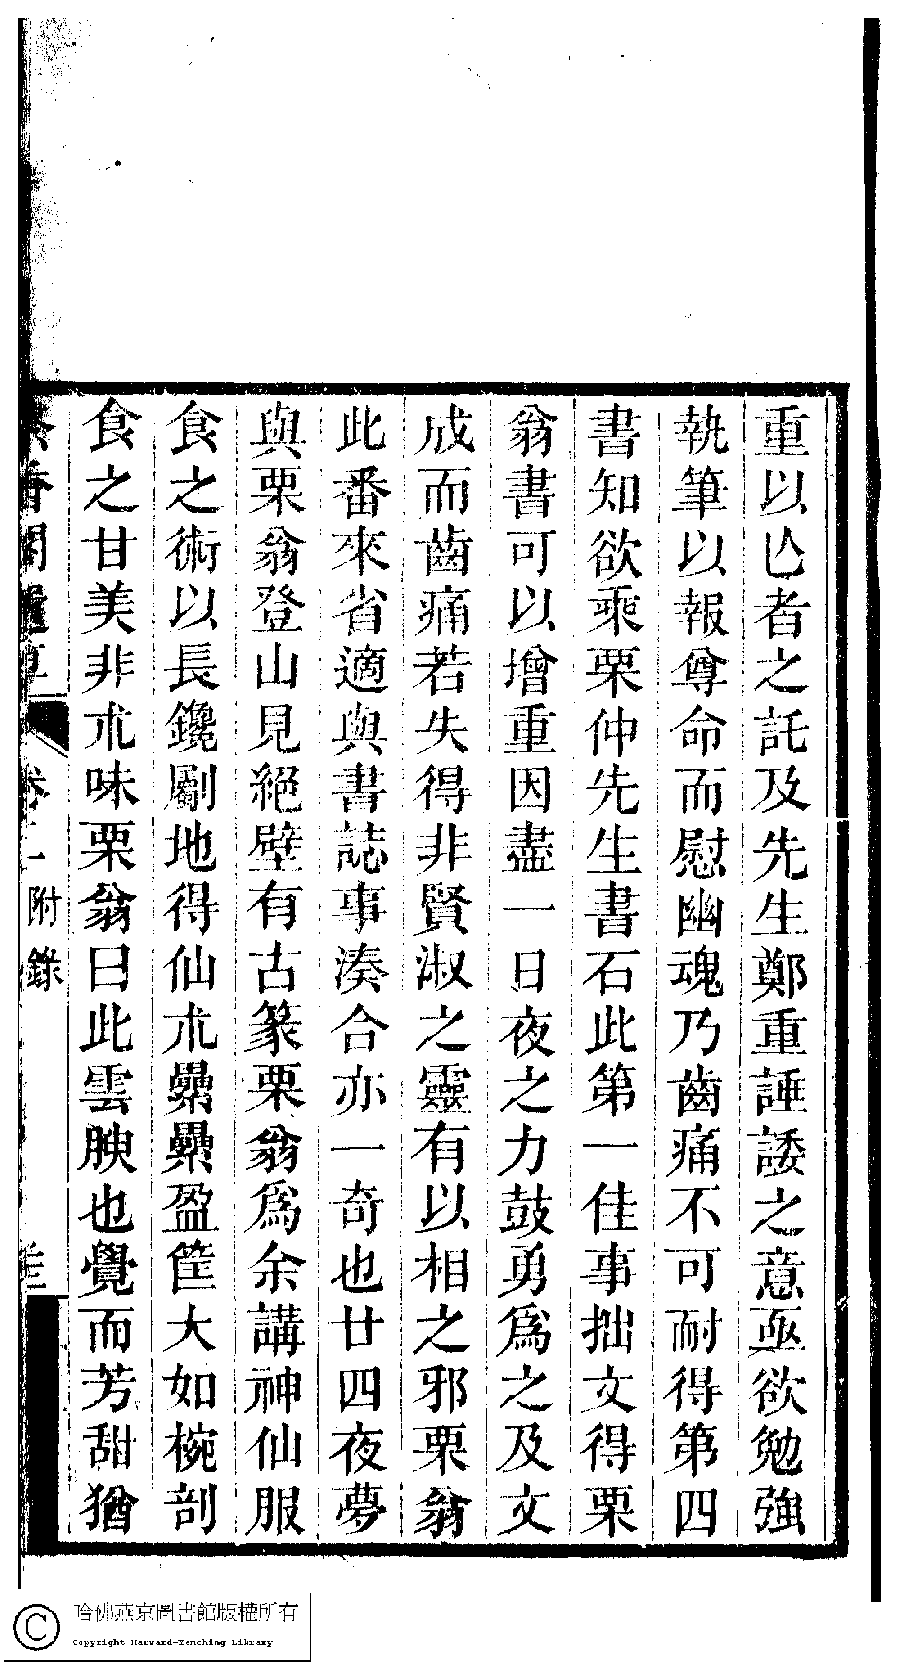 重以亾者之託及先生鄭重諈諉之意亟欲勉強
執筆以報尊命而慰幽魂乃齒痛不可耐得第四
書知欲乘栗仲先生書石此第一佳事拙文得栗
翁書可以增重因盡一日夜之力鼓勇爲之及文
成而齒痛若失得非賢淑之靈有以相之邪栗翁
此番來省適與書誌事湊合亦一奇也廿四夜夢
與栗翁登山見絕壁有古篆栗翁爲余講神仙服
食之術以長鑱劚地得仙朮纍纍盈筐大如椀剖
食之甘美非朮味栗翁曰此雲腴也覺而芳甜猶
香閣遺草 卷二 附錄
哈佛燕京圖書館版權所有
Copyright Harvard-Yenching Library